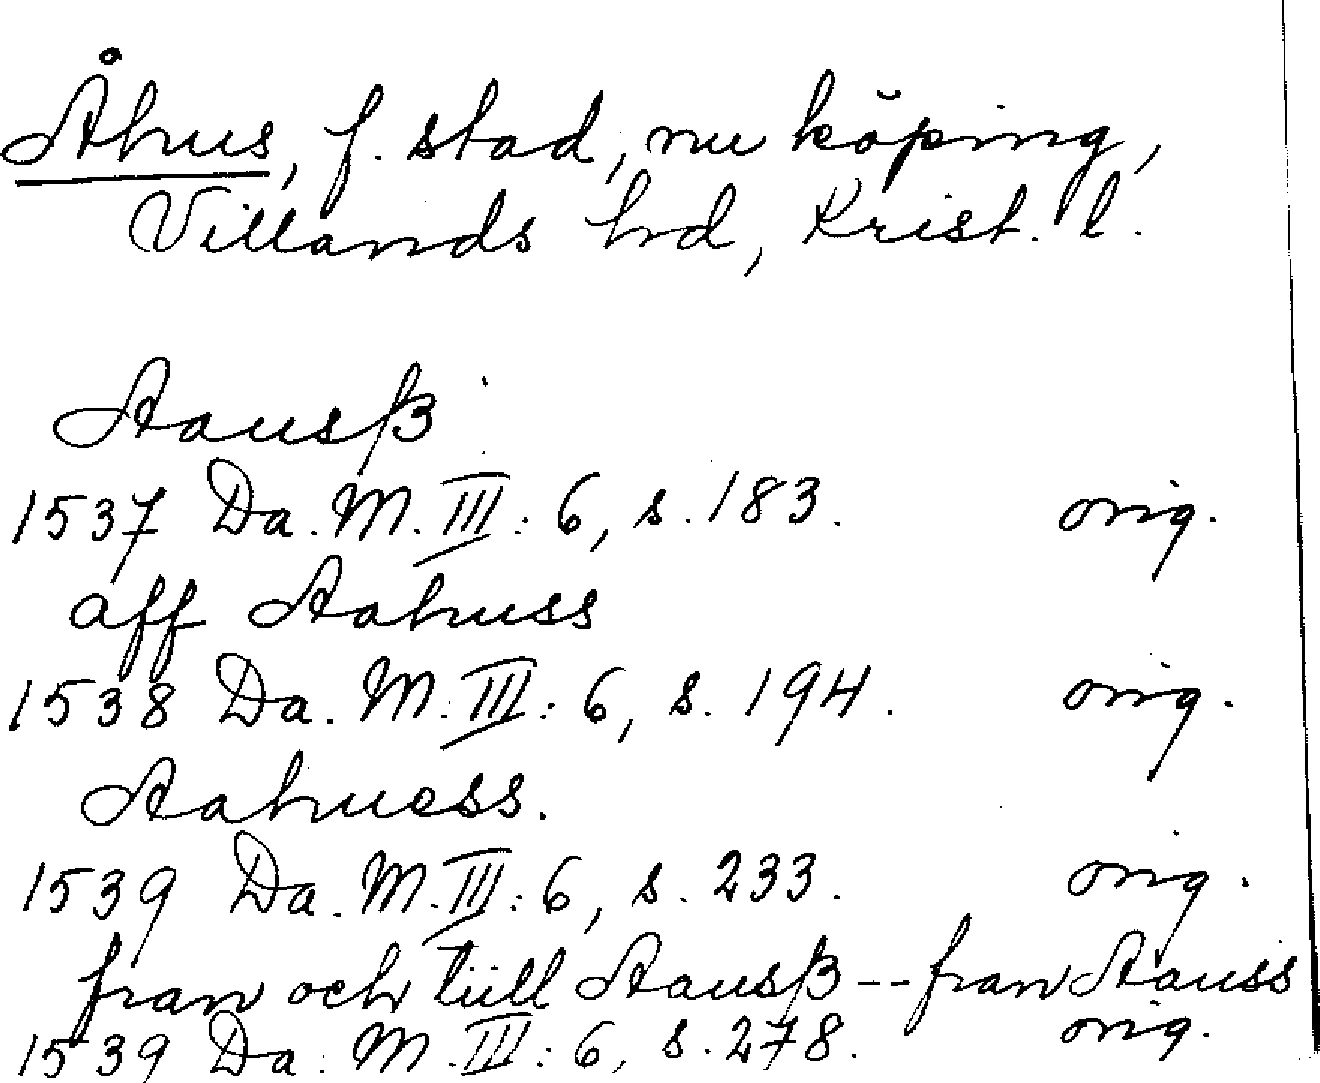 Åhus, f. stad, nu köping,
Villands hd, Krist. l.
Aausß
1537 Da. M. III: 6, s. 183. orig.
aff Aahuss
1538 Da. M. III: 6, s. 194. orig.
Aahuess.
1539 Da. M. III: 6, s. 233. orig.
fran och tüll Aausß -- fran Aauss
1539 Da. M. III: 6, s. 278. orig.